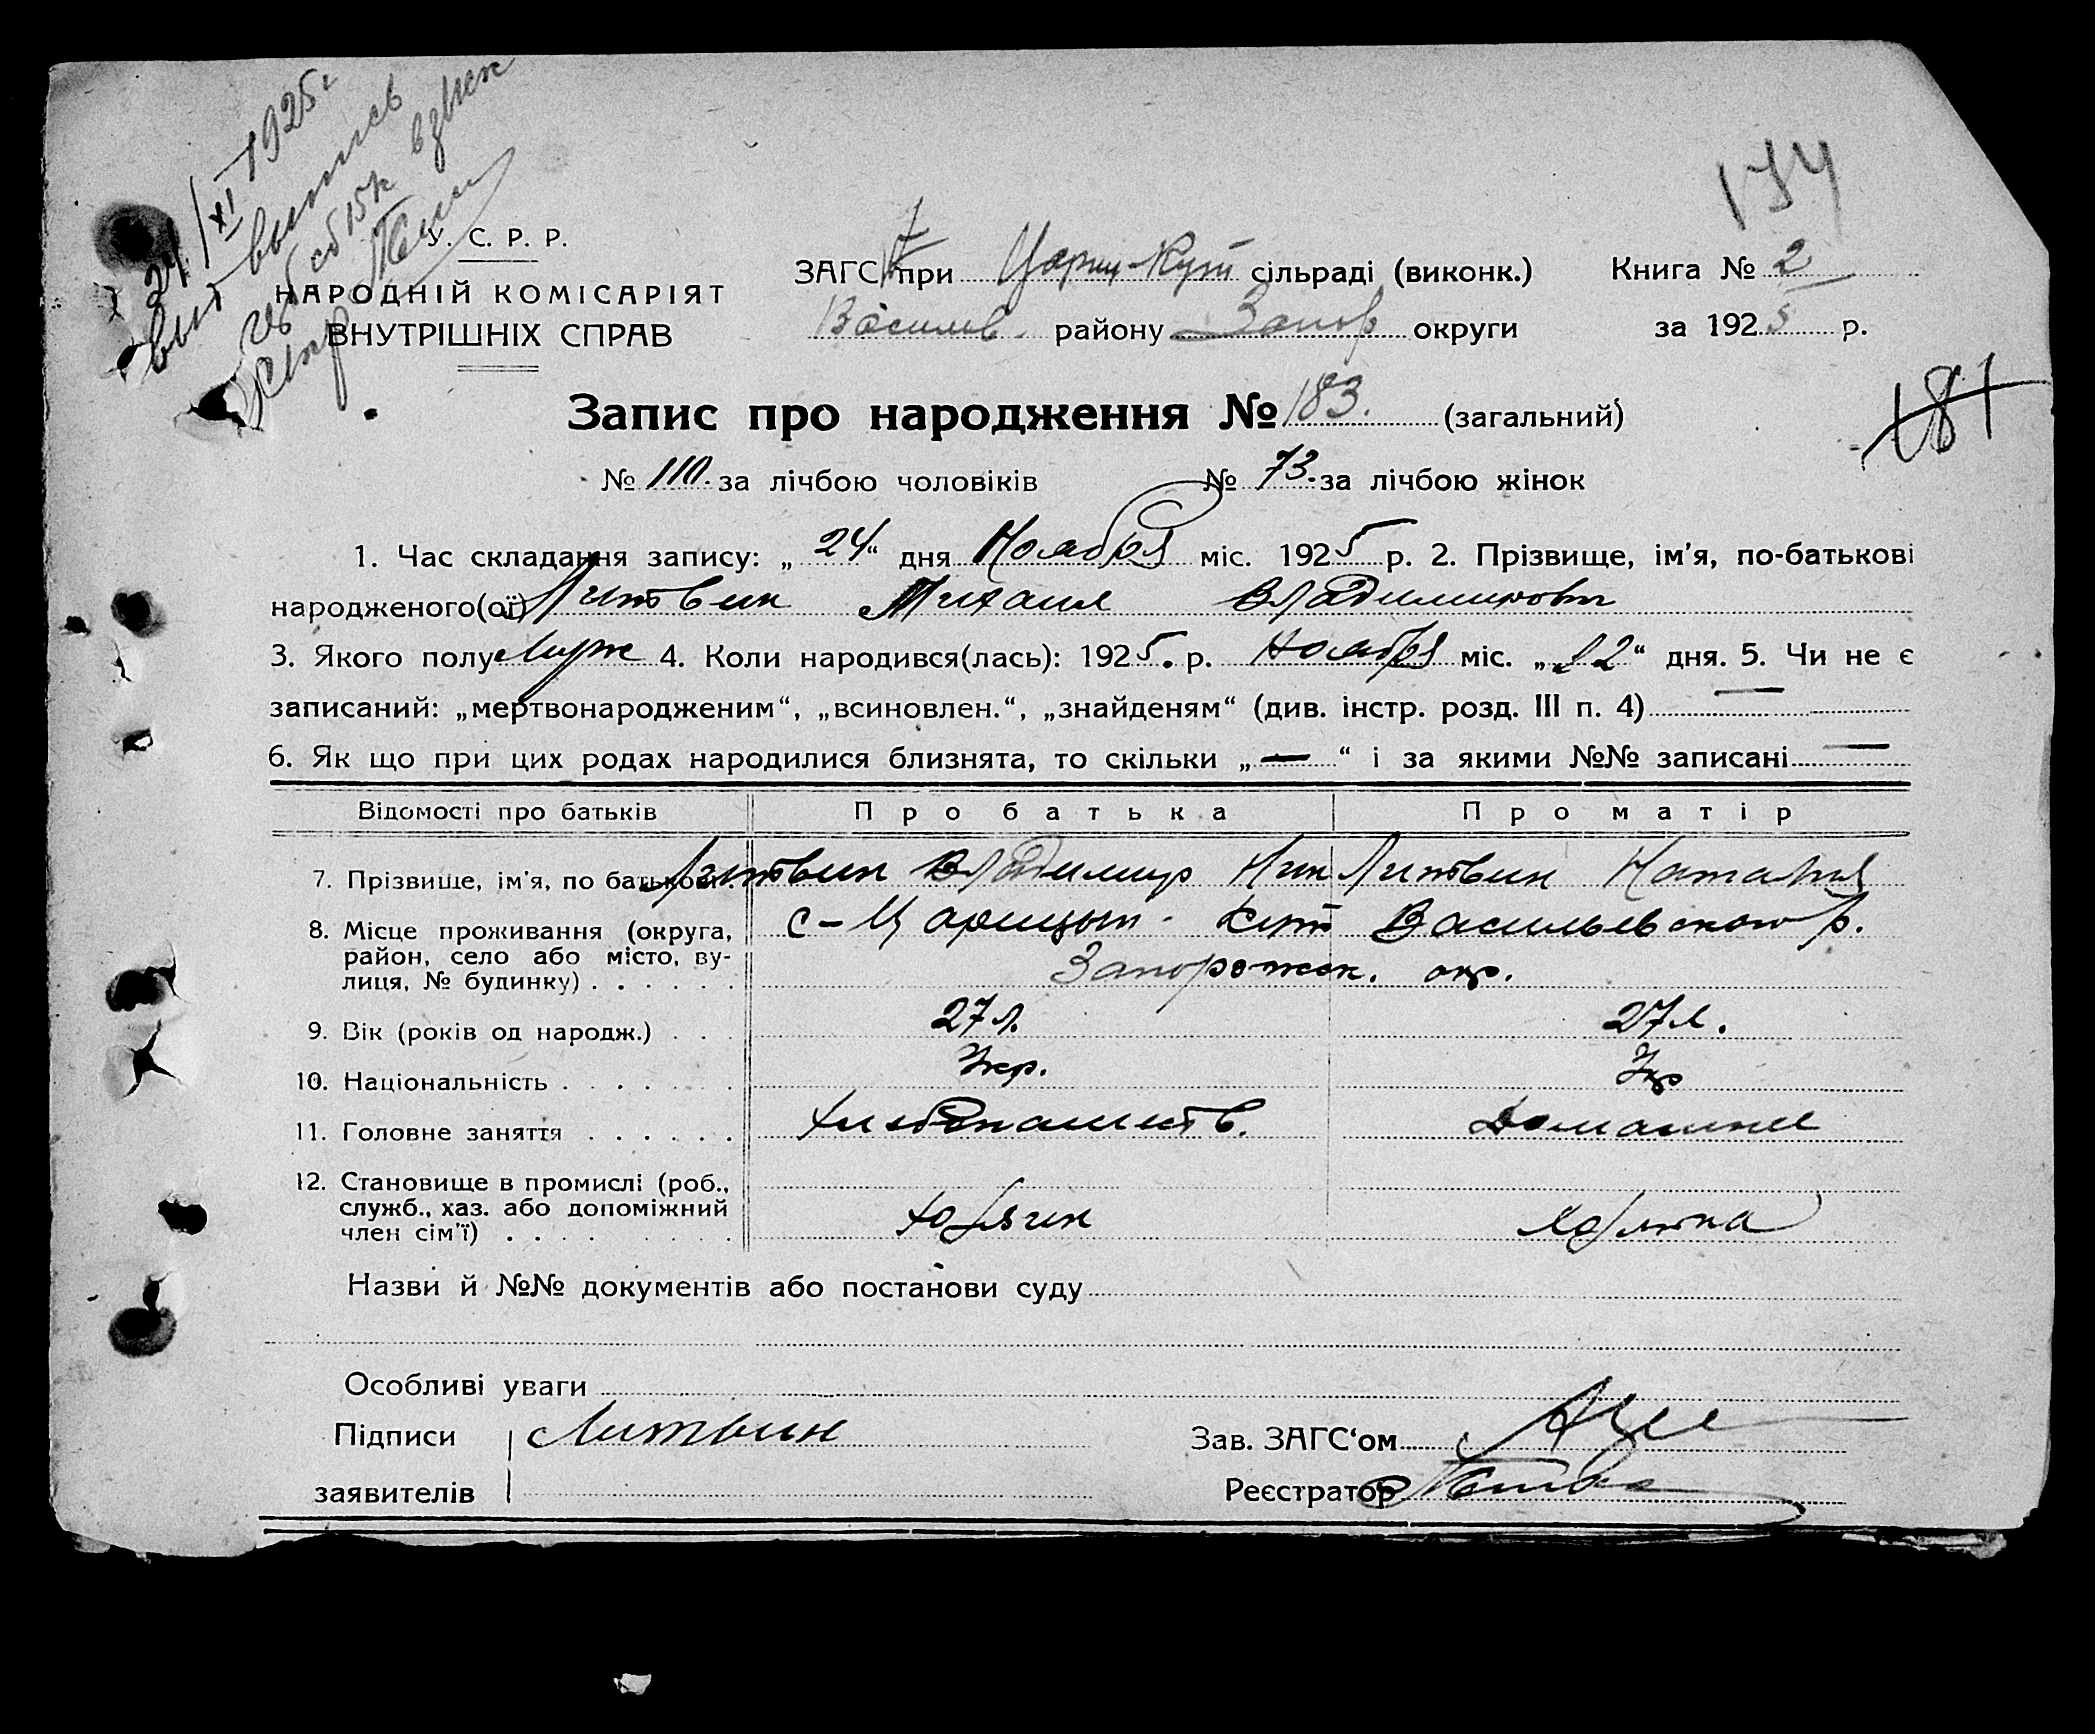 24/XI 1925 г
выд выпись
сб 15к взыск
174
У. С. Р. Р.
НАРОДНІЙ КОМІСАРІЯТ
ВНУТРІШНІХ СПРАВ
ЗАГС при Цариц-Кут сільраді (виконк.) Книга № 2
Василев. району Запор округи за 1925 р.
181
Запис про народження № 183. (загальний)
№ 110. за лічбою чоловіків № 73. за лічбою жінок
1. Час складання запису: „24“ дня Ноября міс. 1925 р. 2. Прізвище, ім'я, по-батькові
народженого(ої) Литвин Михаил Владимирович
3. Якого полу Муж 4. Коли народився(лась): 1925. р. Ноября міс. „22“ дня. 5. Чи не є
записаний: „мертвонародженим“, „всиновлен.“, „знайденям“ (див. інстр. розд. III п. 4) —
6. Як що при цих родах народилися близнята, то скільки „—“ і за якими №№ записані —
Відомості про батьків Про батька Про матір
7. Прізвище, ім'я, по батькові. Литвин Владимир Ник Литвин Наталия
8. Місце проживання (округа, с-Царицын-Кут Васильевского р.
район, село або місто, ву-
лиця, № будинку) . . . . . . Запорожск. окр.
9. Вік (років од народж.) . . . 27 л. 27 л.
10. Національність . . . . . . . Укр. Укр
11. Головне заняття . . . . . . Хлебопашеств. Домашнее
12. Становище в промислі (роб.,
служб., хаз. або допоміжний
член сім'ї) . . . . . . . . . Хозяин Хозяйка
Назви й №№ документів або постанови суду
Особливі уваги
Підписи Литвин Зав. ЗАГС‘ом
заявителів Реєстратор